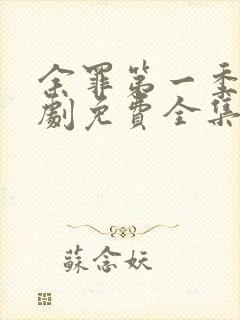 余罪第一季
劇免費全集
蘇念妖